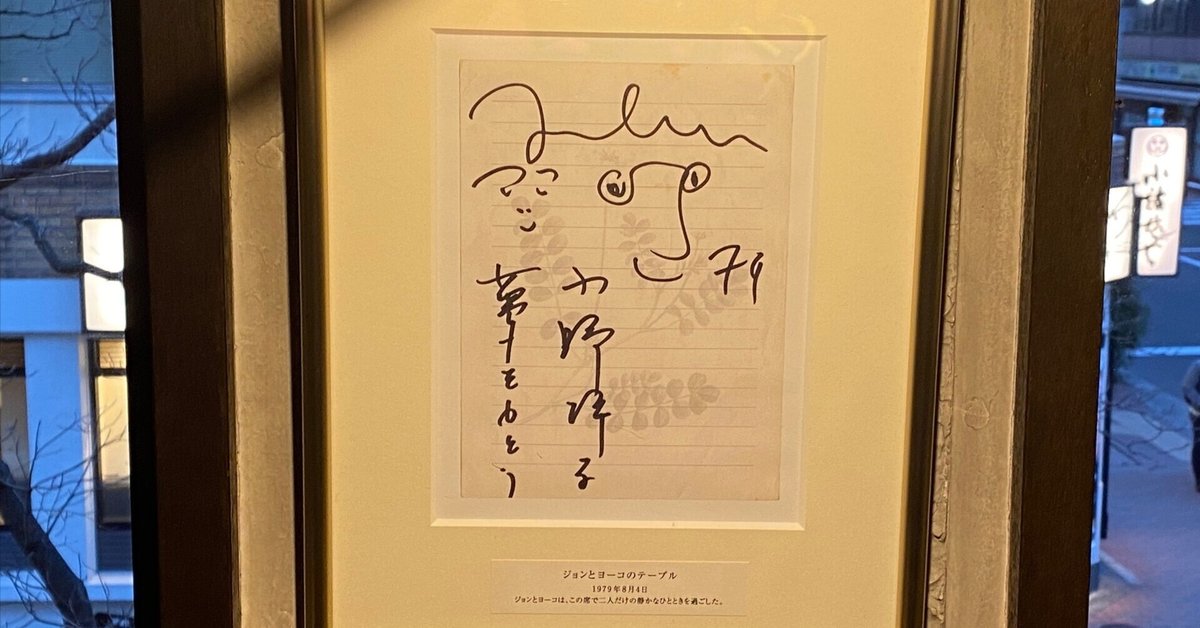 John
79
小野洋子
夢をもとう
ジョンとヨーコのテーブル
1979年8月4日
ジョンとヨーコは、この席で二人だけの静かなひとときを過ごした。
小諸そば